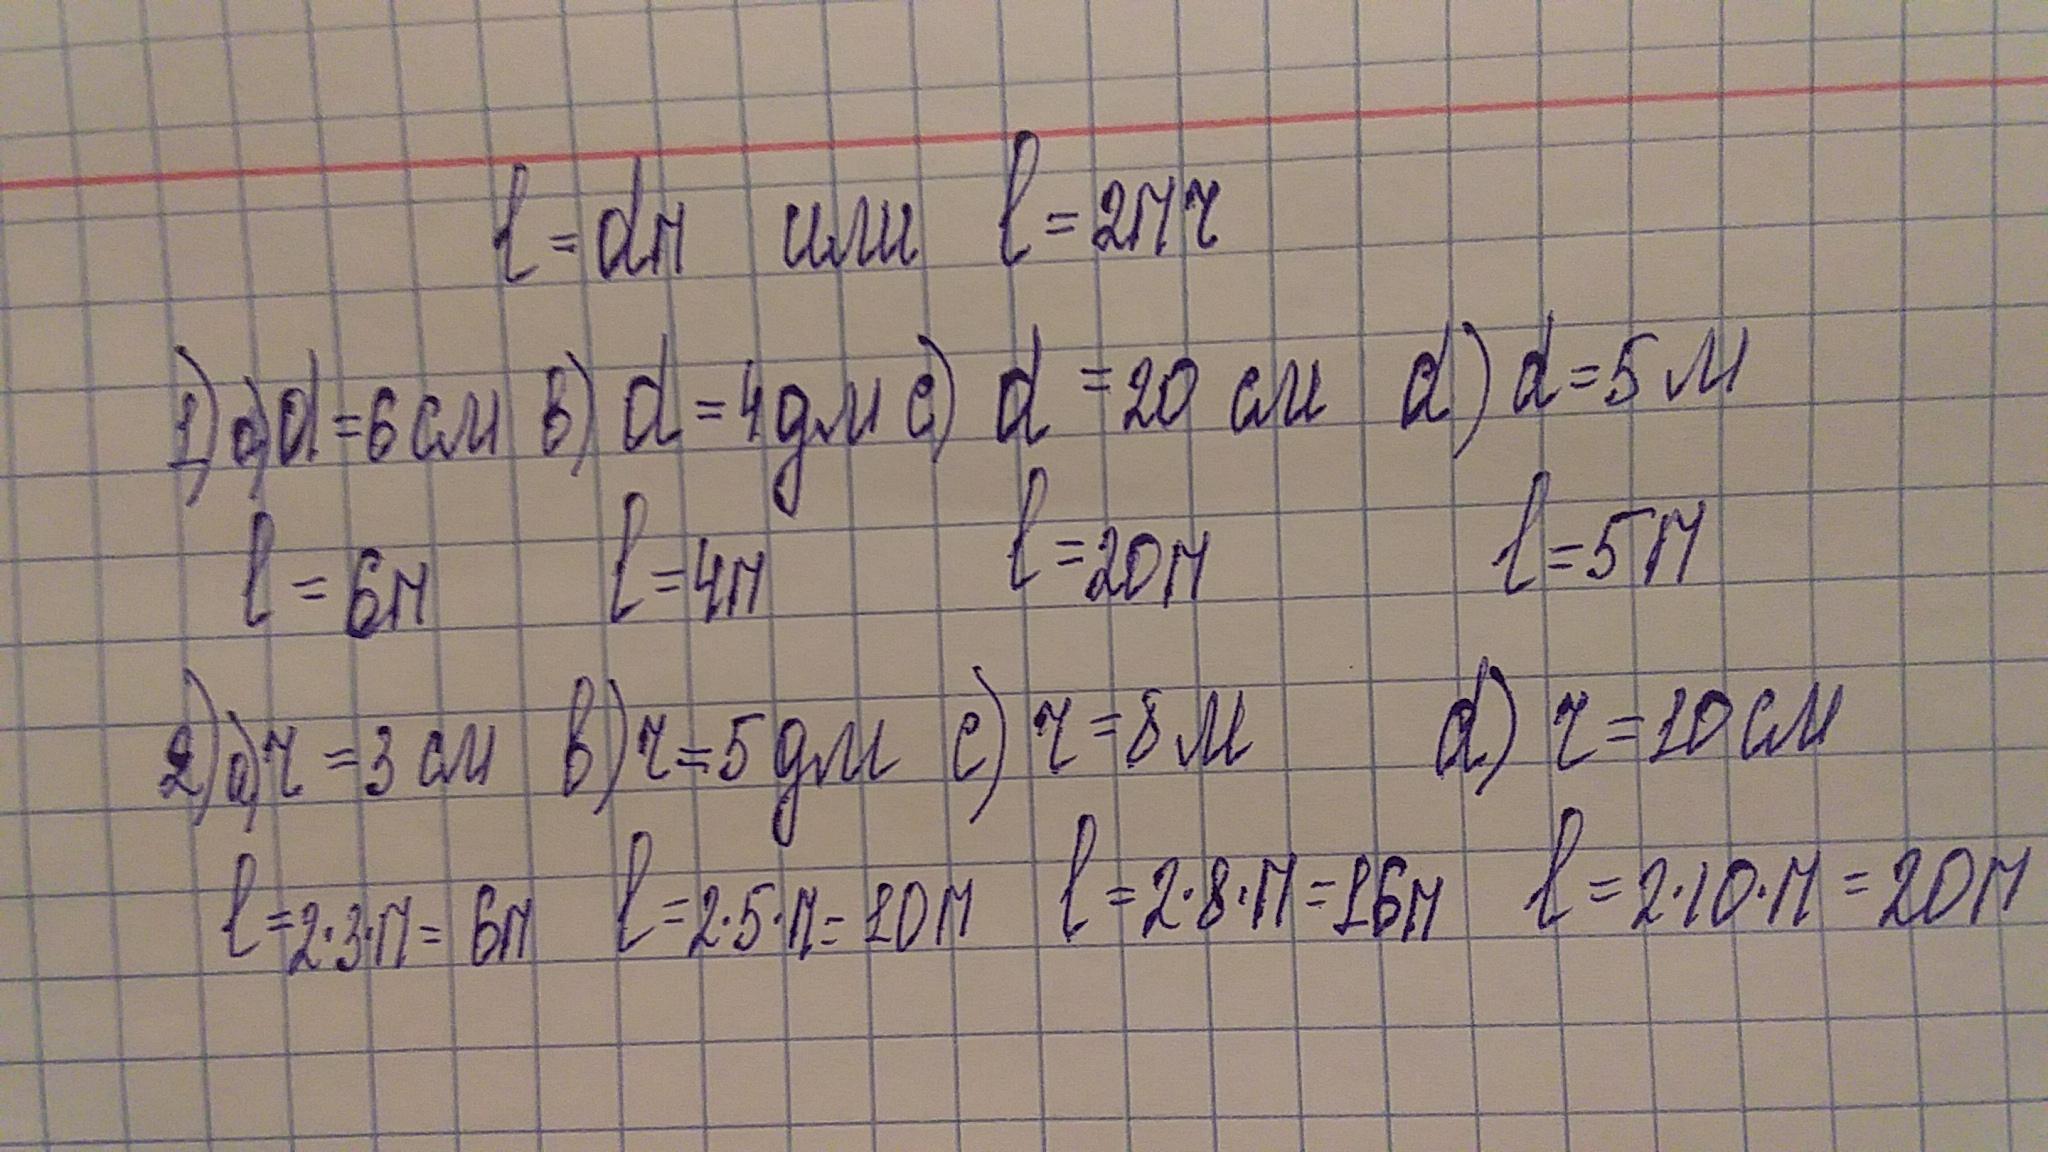 l = dπ или l = 2πr
1) a) d = 6 см b) d = 4 дм c) d = 20 см d) d = 5 м
l = 6π l = 4π l = 20π l = 5π
2) a) r = 3 см b) r = 5 дм c) r = 8 м d) r = 10 см
l = 2·3·π = 6π l = 2·5·π = 10π l = 2·8·π = 16π l = 2·10·π = 20π